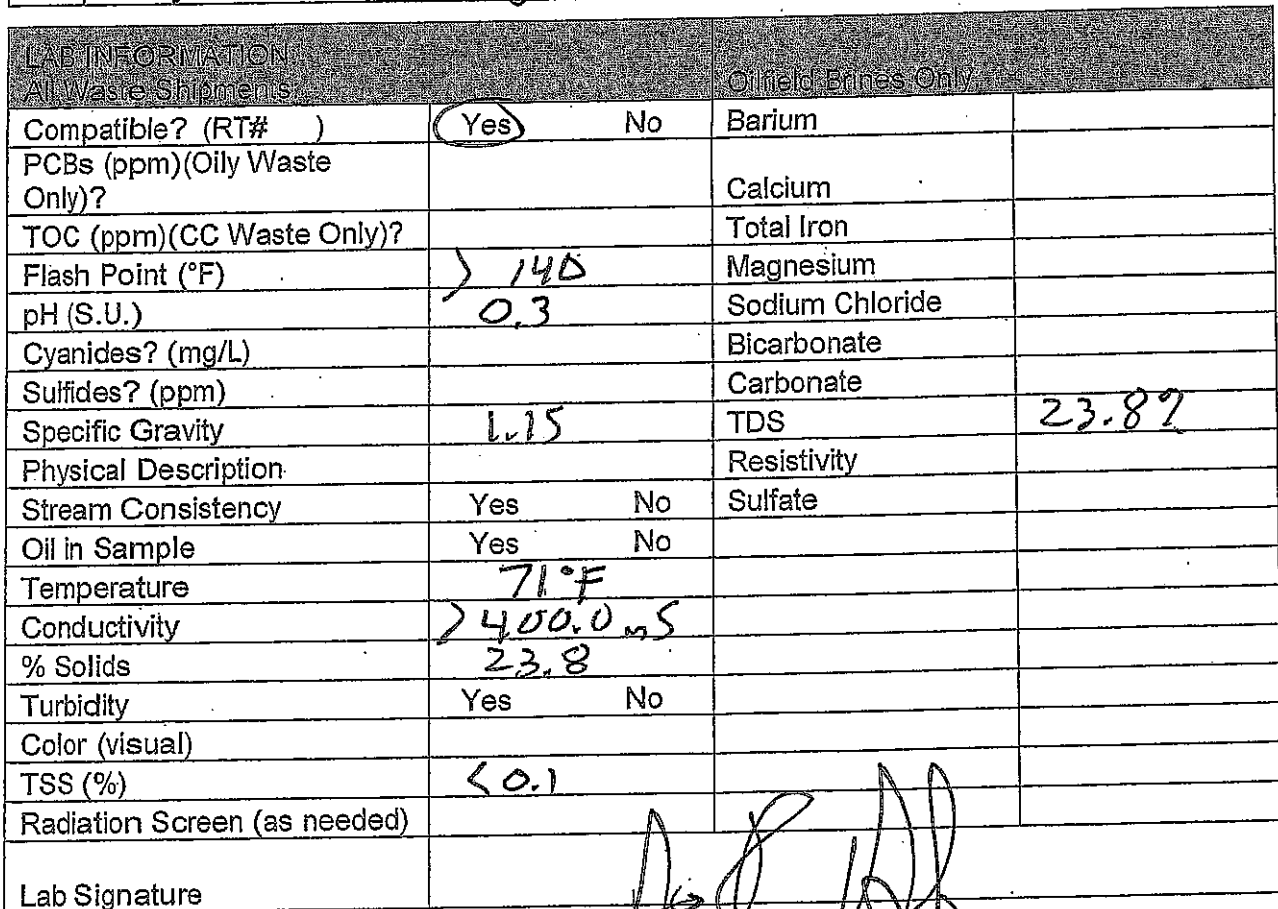 LAB INFORMATION
All Waste Shipments
Oilfield Brines Only
Compatible? (RT# ) Yes No Barium
PCBs (ppm)(Oily Waste
Only)? Calcium
TOC (ppm)(CC Waste Only)? Total Iron
Flash Point (°F) > 140 Magnesium
pH (S.U.) 0.3 Sodium Chloride
Cyanides? (mg/L) Bicarbonate
Sulfides? (ppm) Carbonate
Specific Gravity 1.15 TDS 23.8%
Physical Description Resistivity
Stream Consistency Yes No Sulfate
Oil in Sample Yes No
Temperature 71°F
Conductivity >400.0 mS
% Solids 23.8
Turbidity Yes No
Color (visual)
TSS (%) <0.1
Radiation Screen (as needed)
Lab Signature